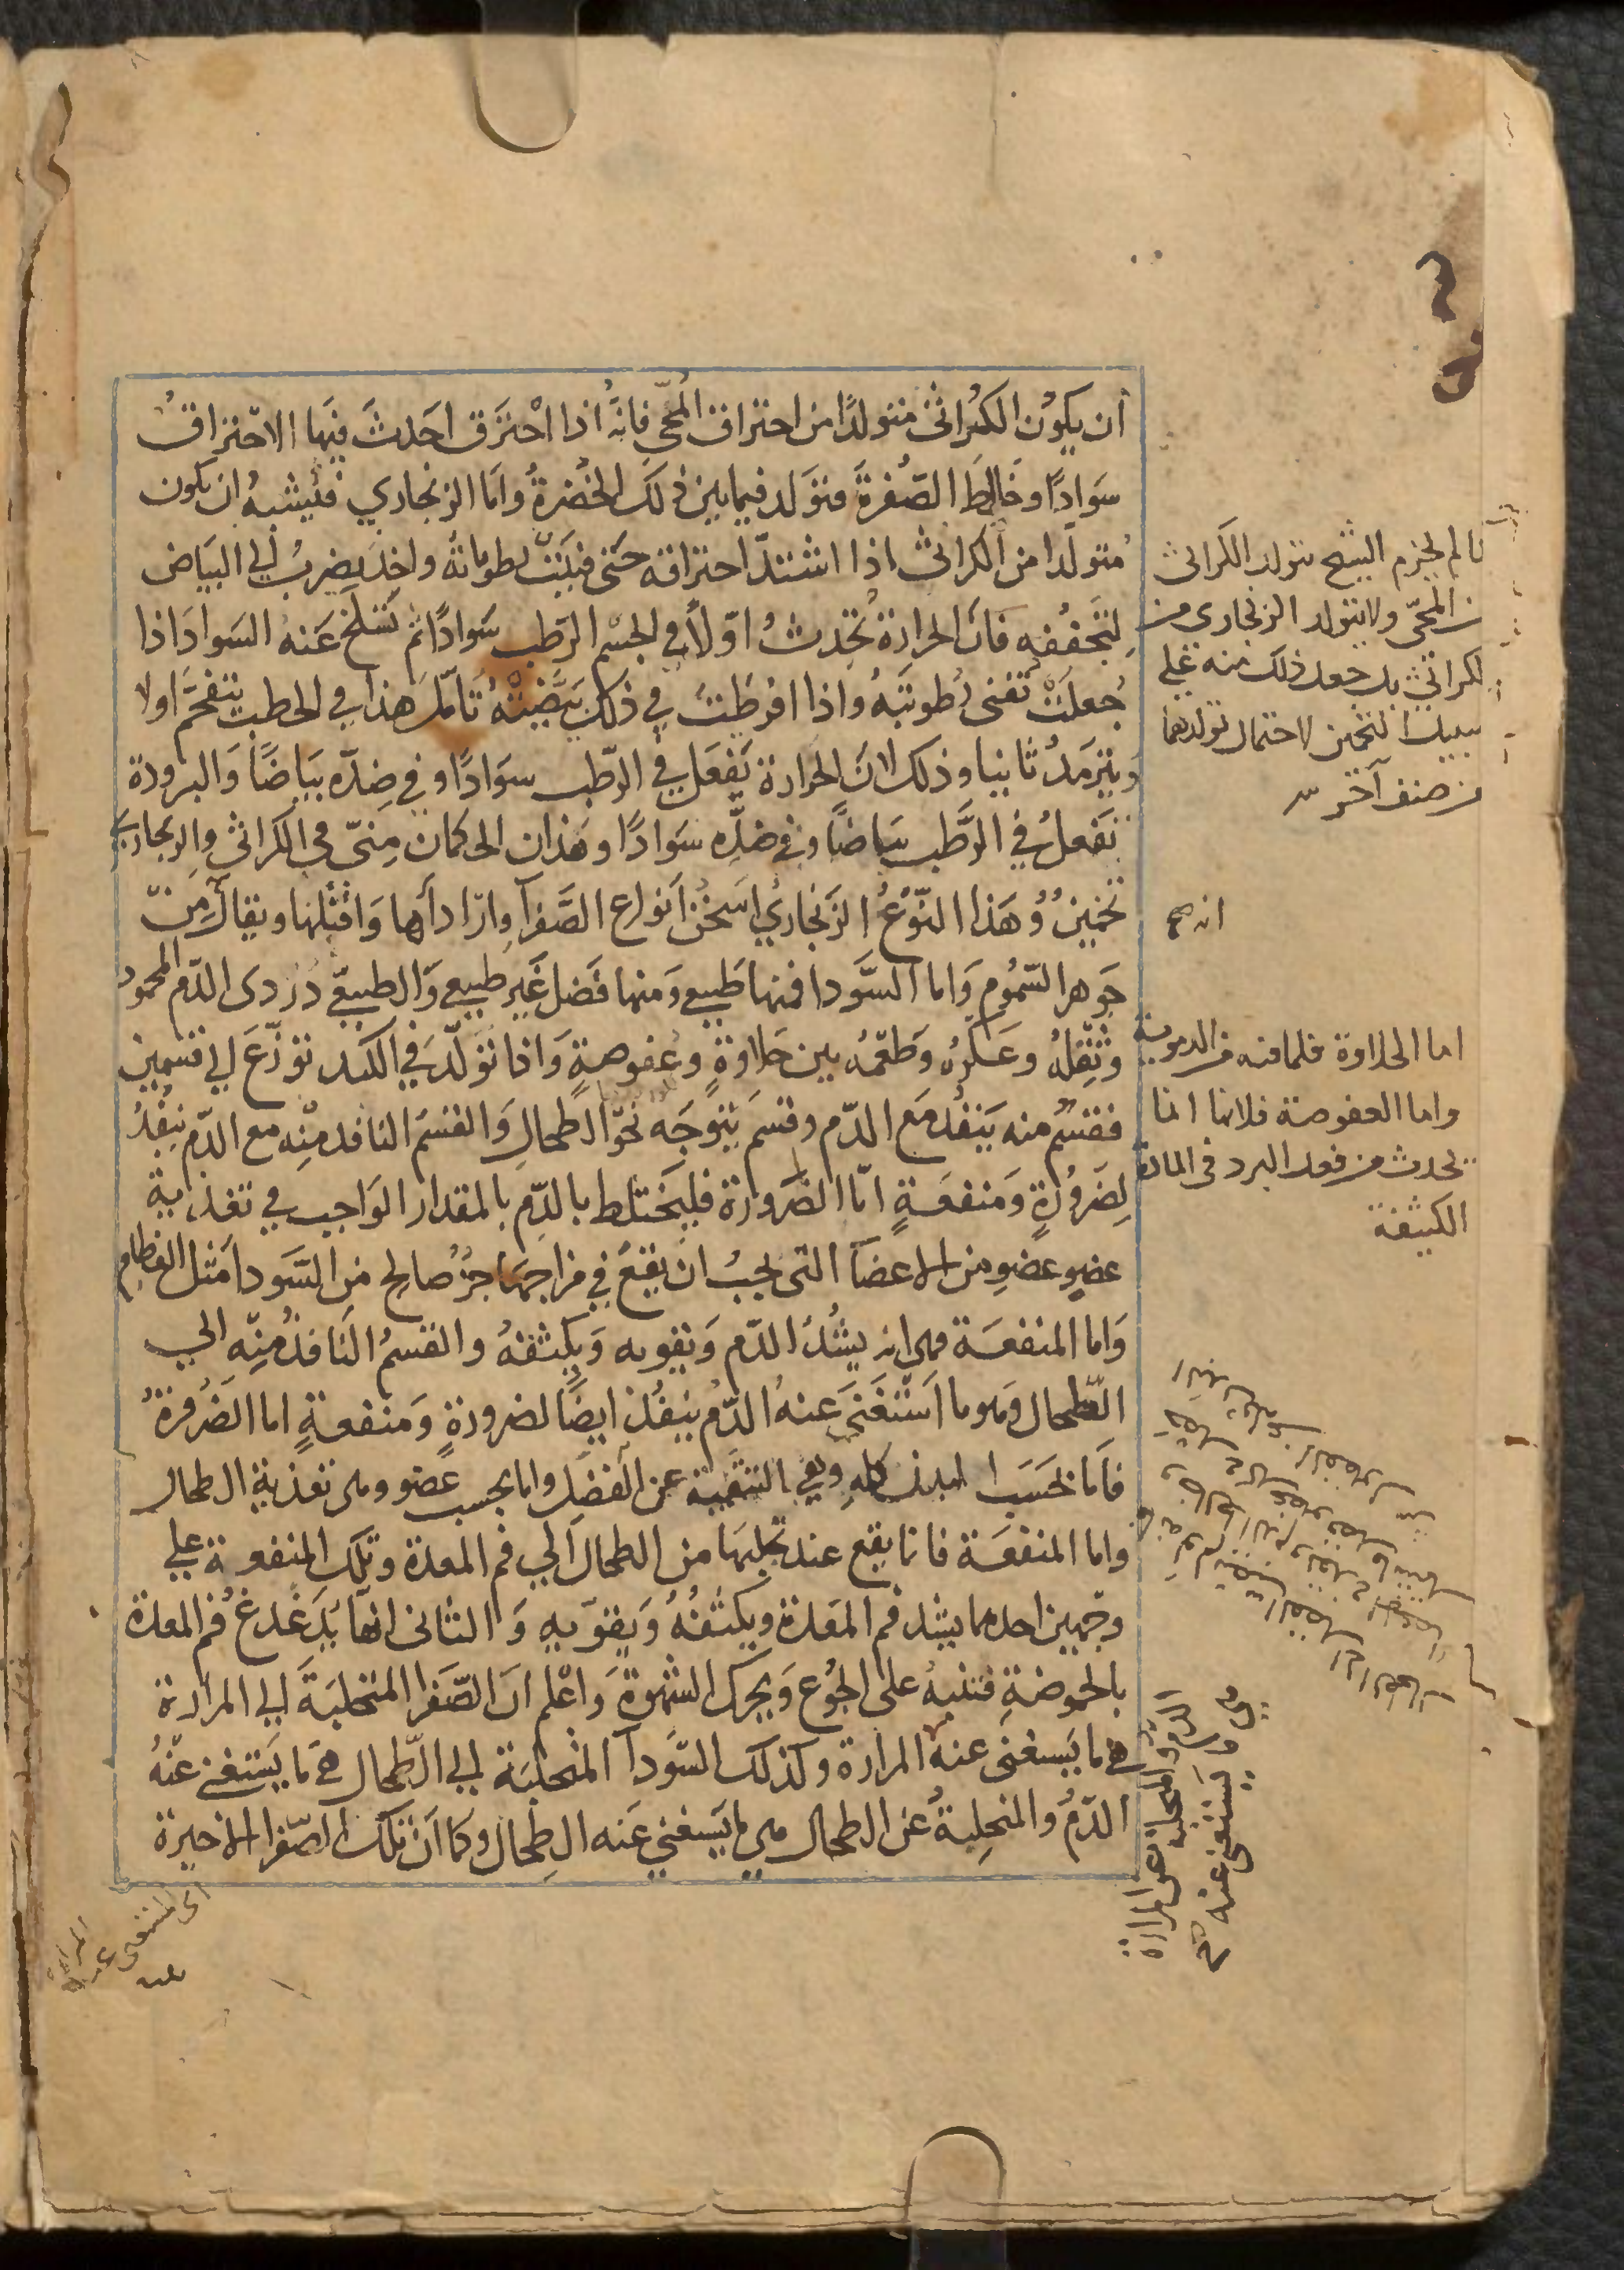 أن يكون الكراثى متولدًا من احتراق المحّى فانه اذا احترق احدث فيها الاحتراق
سوادًا وخالط الصُّفرة فتولد فيما بين ذلك الخضرة واما الزنجاري فيشبه ان يكون
متولّدا من الكراثى اذا اشتدّ احتراقه حتى فنيت رطوباته واخذ يضرب الي البياض
لتجففه فان الحرارة تحدث اوّلًا في الجسم الرطب سوادًا ثم تسلخ عنه السواد اذا
جعلت تفنى رطوبته واذا افرطت في ذلك بيّضته تامّل هذا في الحطب يتفحّم اولا
ويترمد ثانيا وذلك لان الحرارة تفعل في الرّطب سوادًا وفي ضدّه بياضًا والبرودة
تفعل في الرّطب بياضًا وفي ضدّه سوادًا وهذان الحكمان منّى في الكراثى والزنجارى
تخمين وهذا النّوع الزنجاري اسخن انواع الصّفرآ واردأها واقتلها ويقال من
جوهر السّموم واما السّودا فمنها طبيعي ومنها فضل غير طبيعي والطبيعيّ دردى الدّم المحمود
وثفله وعكره وطعمه بين حلاوةٍ وعفوصةٍ واذا تولّد في الكبد توزّع الي قسمين
فقسم منه ينفذ مع الدّم وقسم يتوجّه نحو الطحال والقسم النافذ منه مع الدّم ينفذ
لضرورةٍ ومنفعةٍ امّا الضرورة فليختلط بالدّم بالمقدار الواجب في تغذية
عضو عضو من الاعضآ التى يجب ان يقع في مزاجها جزءٌ صالح من السّودا مثل العظام
واما المنفعة فهى انه يشدّ الدّم ويقويه ويكثفه والقسم النافذ منه الي
الطحال وهو ما استغنى عنه الدّم ينفذ ايضًا لضرورةٍ ومنفعةٍ اما الضرورة
فاما بحسب البدن كله وهي التنقية عن الفضل واما بحسب عضو وهى تغذية الطحال
واما المنفعة فانما يقع عند تحلبها من الطحال الي فم المعدة وتلك المنفعة علي
وجهين احدهما يشد فم المعدة ويكثفه ويقويه والثانى انها يدغدغ فم المعدة
بالحموضة فتنبه على الجوع ويحرك الشهوة واعلم ان الصّفرا المتحلبة الي المرارة
هي ما يستغنى عنه المرارة وكذلك السّودآ المتحلبة الي الطحال هي ما يستغنى عنه
الدّم والمتحلبة عن الطحال هي ما يستغني عنه الطحال وكما ان تلك الصّفرا الاخيرة
لم يجزم الشيخ بتولد الكراثى
المحّى ولا بتولد الزنجارى من
الكراثى بل جعل ذلك منه على
سبيل التخمين لاحتمال تولدهما
من صنف آخر
انه صح
اما الحلاوة فلما فيه من الدموية
واما العفوصة فلانها انما
تحدث من فعل البرد فى المادة
الكثيفة
الدم والمتحلبة عن المرارة
هي ما يستغنى عنه صح
اى المستغنى عنه
المرارة